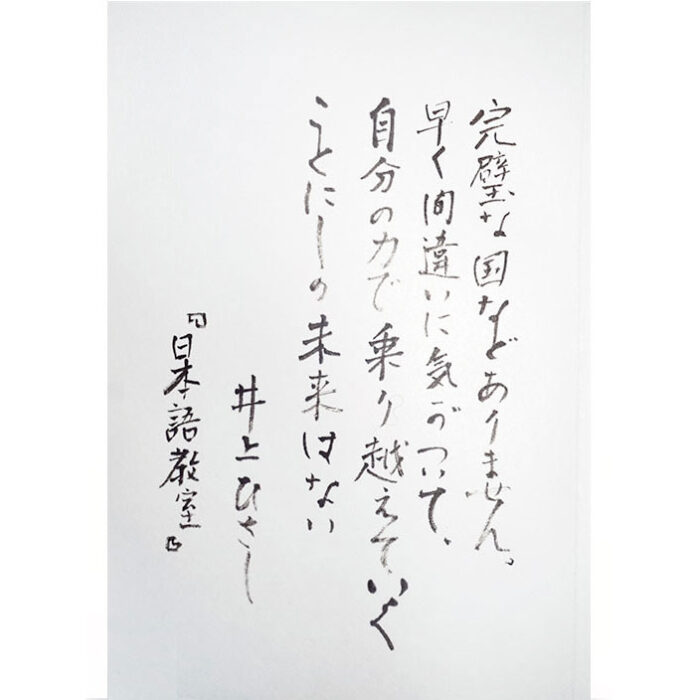 完璧な国などありません。
早く間違いに気がついて、
自分の力で乗り越えていく
ことにしの未来はない
井上ひさし
『日本語教室』